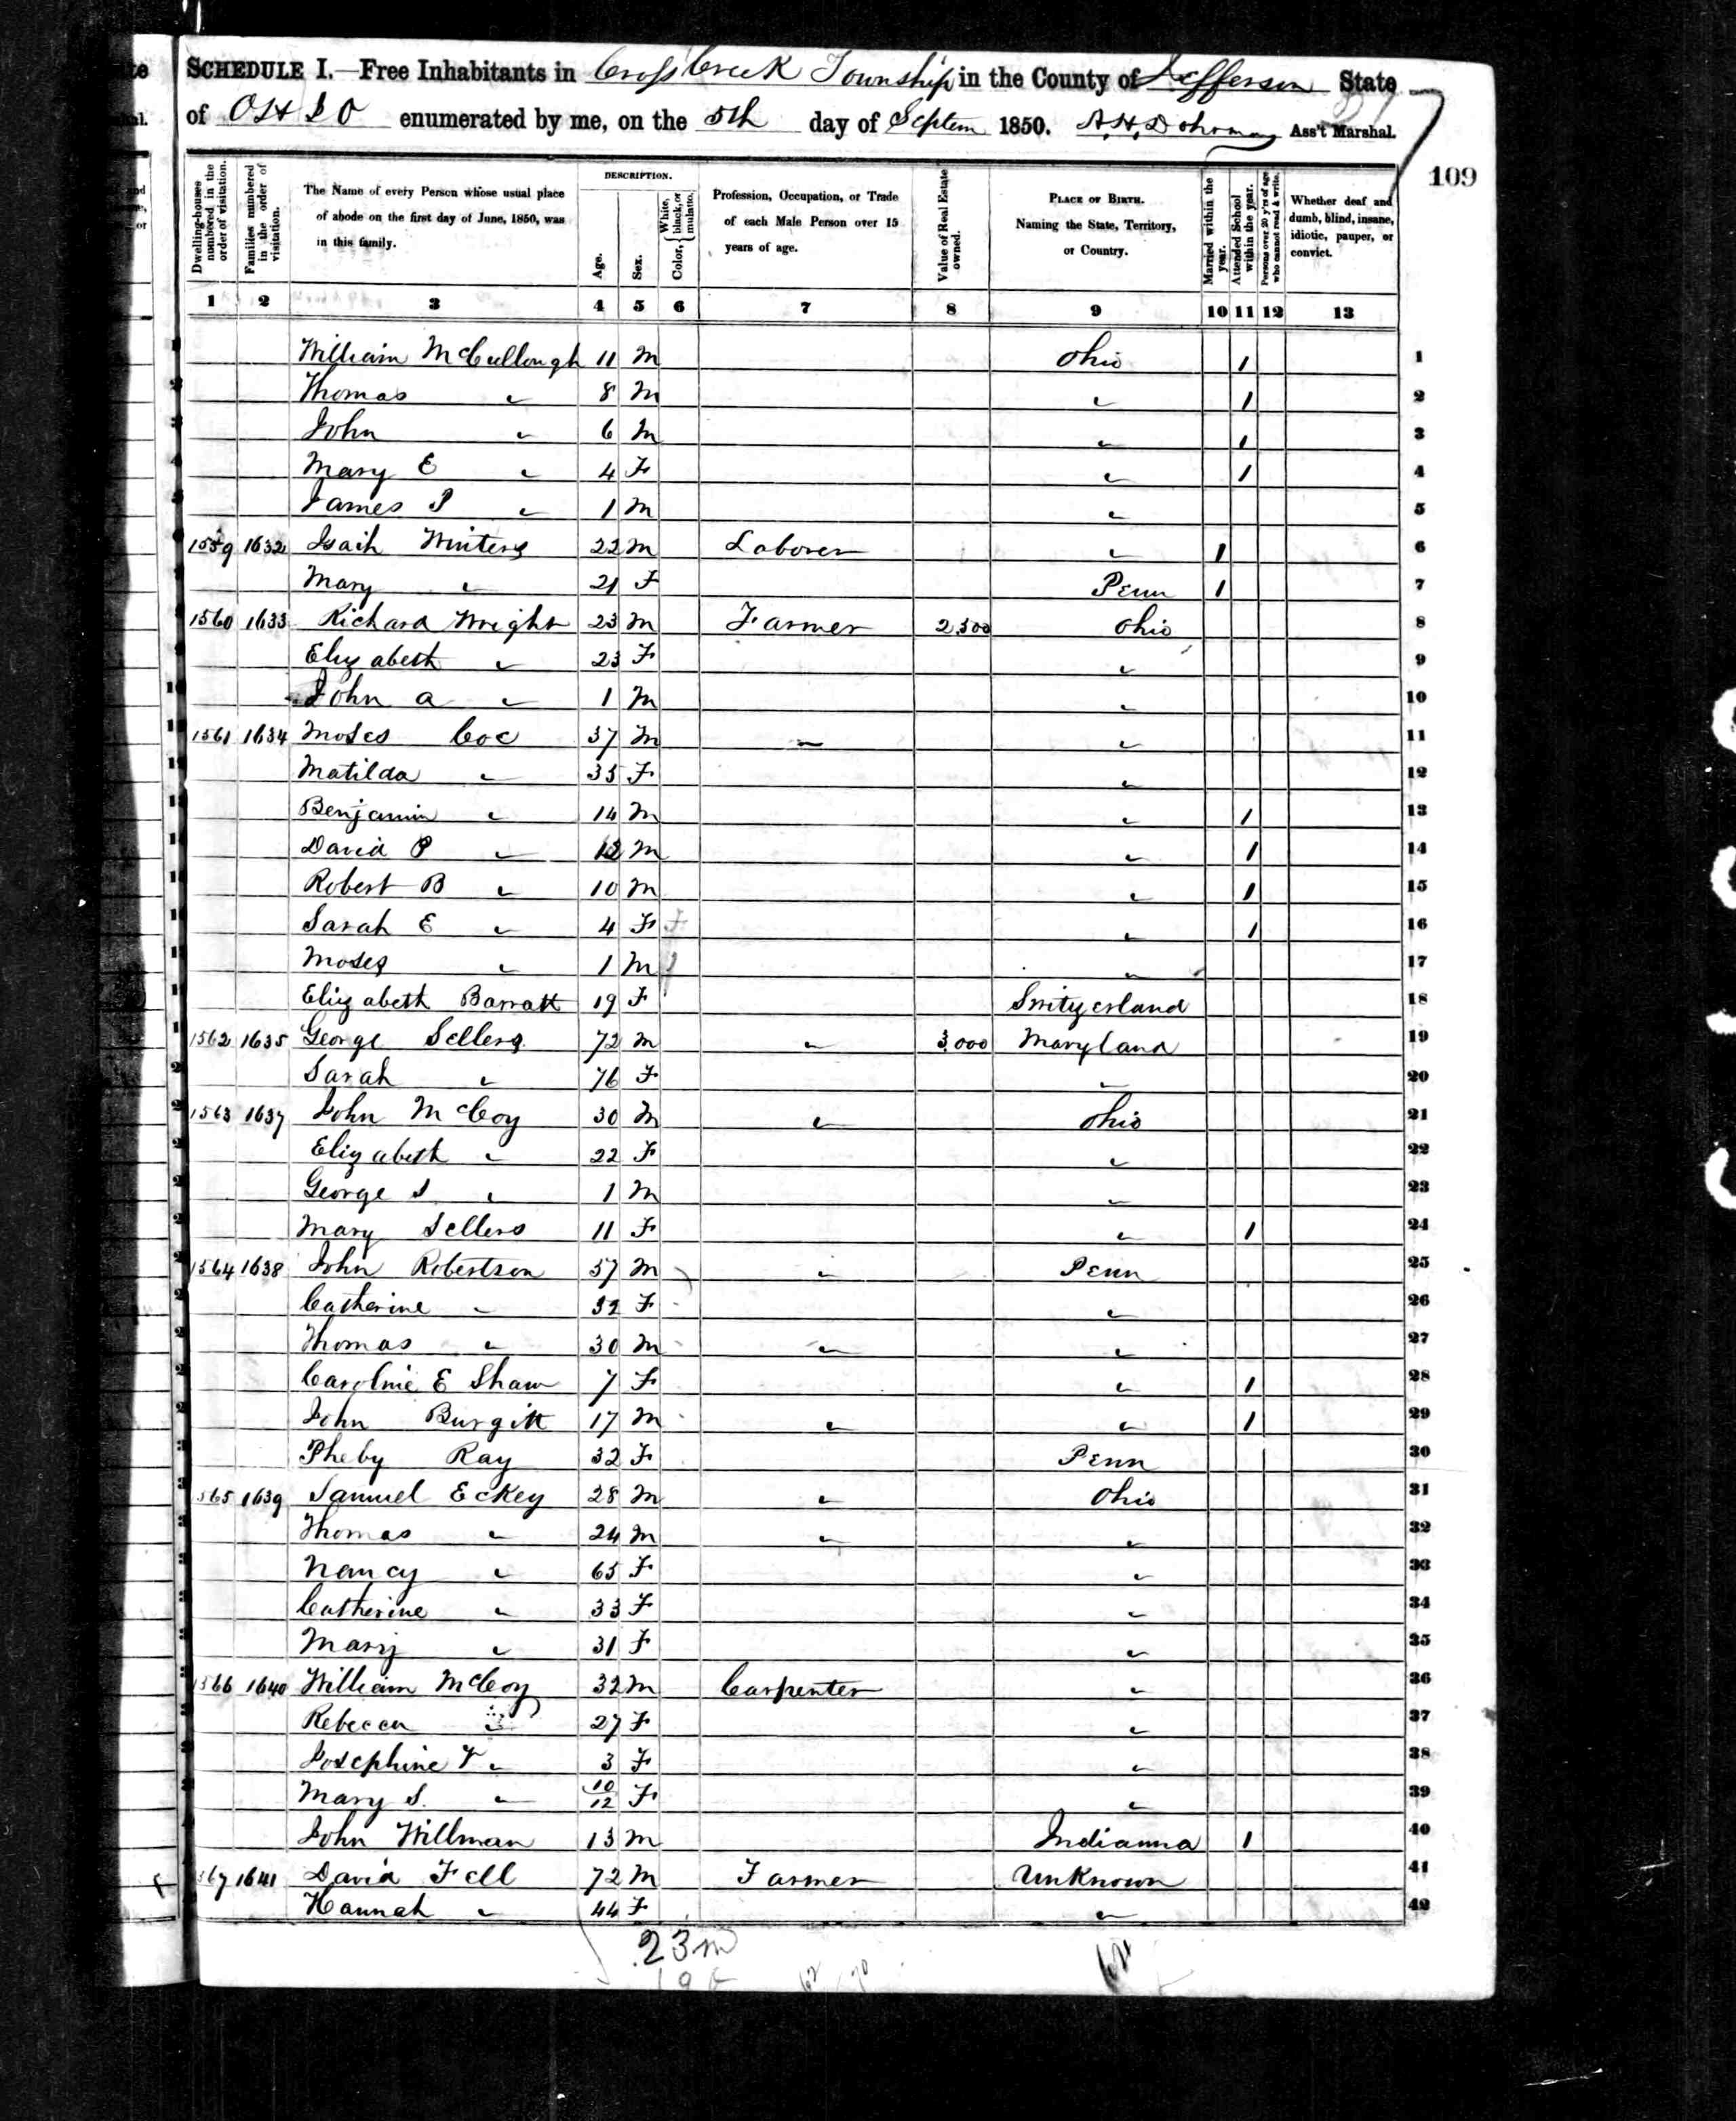 SCHEDULE I.—Free Inhabitants in Cross Creek Township in the County of Jefferson State
of OHIO enumerated by me, on the 5th day of Septem 1850. A. H. Dohrman Ass't Marshal.
109
Dwelling-houses numbered in the order of visitation.
Families numbered in the order of visitation.
The Name of every Person whose usual place of abode on the first day of June, 1850, was in this family.
DESCRIPTION.
Age.
Sex.
Color, { White, black, or mulatto.
Profession, Occupation, or Trade of each Male Person over 15 years of age.
Value of Real Estate owned.
PLACE OF BIRTH. Naming the State, Territory, or Country.
Married within the year.
Attended School within the year.
Persons over 20 y'rs of age who cannot read & write.
Whether deaf and dumb, blind, insane, idiotic, pauper, or convict.
1 2 3 4 5 6 7 8 9 10 11 12 13
William McCullough 11 M Ohio 1 1
Thomas " 8 M " 1 2
John " 6 M " 1 3
Mary E " 4 F " 1 4
James P " 1 M " 5
1559 1632 Isaih Winters 22 M Laborer " 1 6
Mary " 21 F Penn 1 7
1560 1633 Richard Wright 23 M Farmer 2,500 Ohio 8
Elizabeth " 23 F " 9
John A " 1 M " 10
1561 1634 Moses Coe 37 M " " 11
Matilda " 35 F " 12
Benjamin " 14 M " 1 13
David P " 12 M " 1 14
Robert B " 10 M " 1 15
Sarah E " 4 F " 1 16
Moses " 1 M " 17
Elizabeth Barratt 19 F Switzerland 18
1562 1635 George Sellers 72 M " 3,000 Maryland 19
Sarah " 76 F " 20
1563 1637 John McCoy 30 M " Ohio 21
Elizabeth " 22 F " 22
George S " 1 M " 23
Mary Sellers 11 F " 1 24
1564 1638 John Robertson 57 M " Penn 25
Catherine " 32 F " 26
Thomas " 30 M " " 27
Caroline E Shaw 7 F " 1 28
John Burgitt 17 M " " 1 29
Pheby Ray 32 F Penn 30
1565 1639 Samuel Eckey 28 M " Ohio 31
Thomas " 24 M " " 32
Nancy " 65 F " 33
Catherine " 33 F " 34
Mary " 31 F " 35
1566 1640 William McCoy 32 M Carpenter " 36
Rebecca " 27 F " 37
Josephine F " 3 F " 38
Mary S. " 10/12 F " 39
John Willman 13 M Indianna 1 40
1567 1641 David Fell 72 M Farmer Unknown 41
Hannah " 44 F " 42
23 m